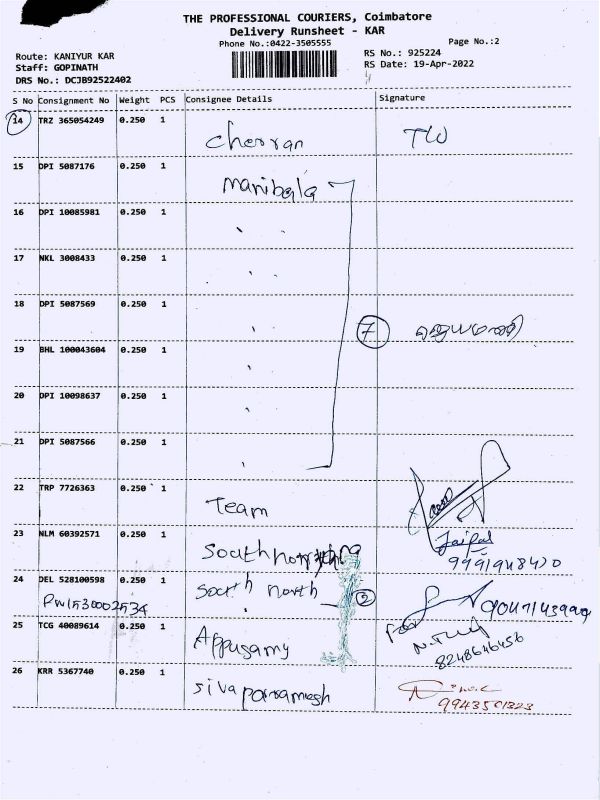 THE PROFESSIONAL COURIERS, Coimbatore
Delivery Runsheet - KAR
Phone No.:0422-3505555
Page No.:2
Route: KANIYUR KAR
RS No.: 925224
Staff: GOPINATH
RS Date: 19-Apr-2022
DRS No.: DCJB92522402
S No Consignment No Weight PCS Consignee Details Signature
14 TRZ 365054249 0.250 1
Cherran TW
15 DPI 5087176 0.250 1
Manibala
16 DPI 10085981 0.250 1
17 NKL 3008433 0.250 1
18 DPI 5087569 0.250 1
7 ஜெயமணி
19 BHL 100043604 0.250 1
20 DPI 10098637 0.250 1
21 DPI 5087566 0.250 1
22 TRP 7726363 0.250 1
Team
23 NLM 60392571 0.250 1
South Jaipal
24 DEL 528100598 0.250 1
South north 2
25 TCG 40089614 0.250 1
Appusamy
8248646456
26 KRR 5367740 0.250 1
siva